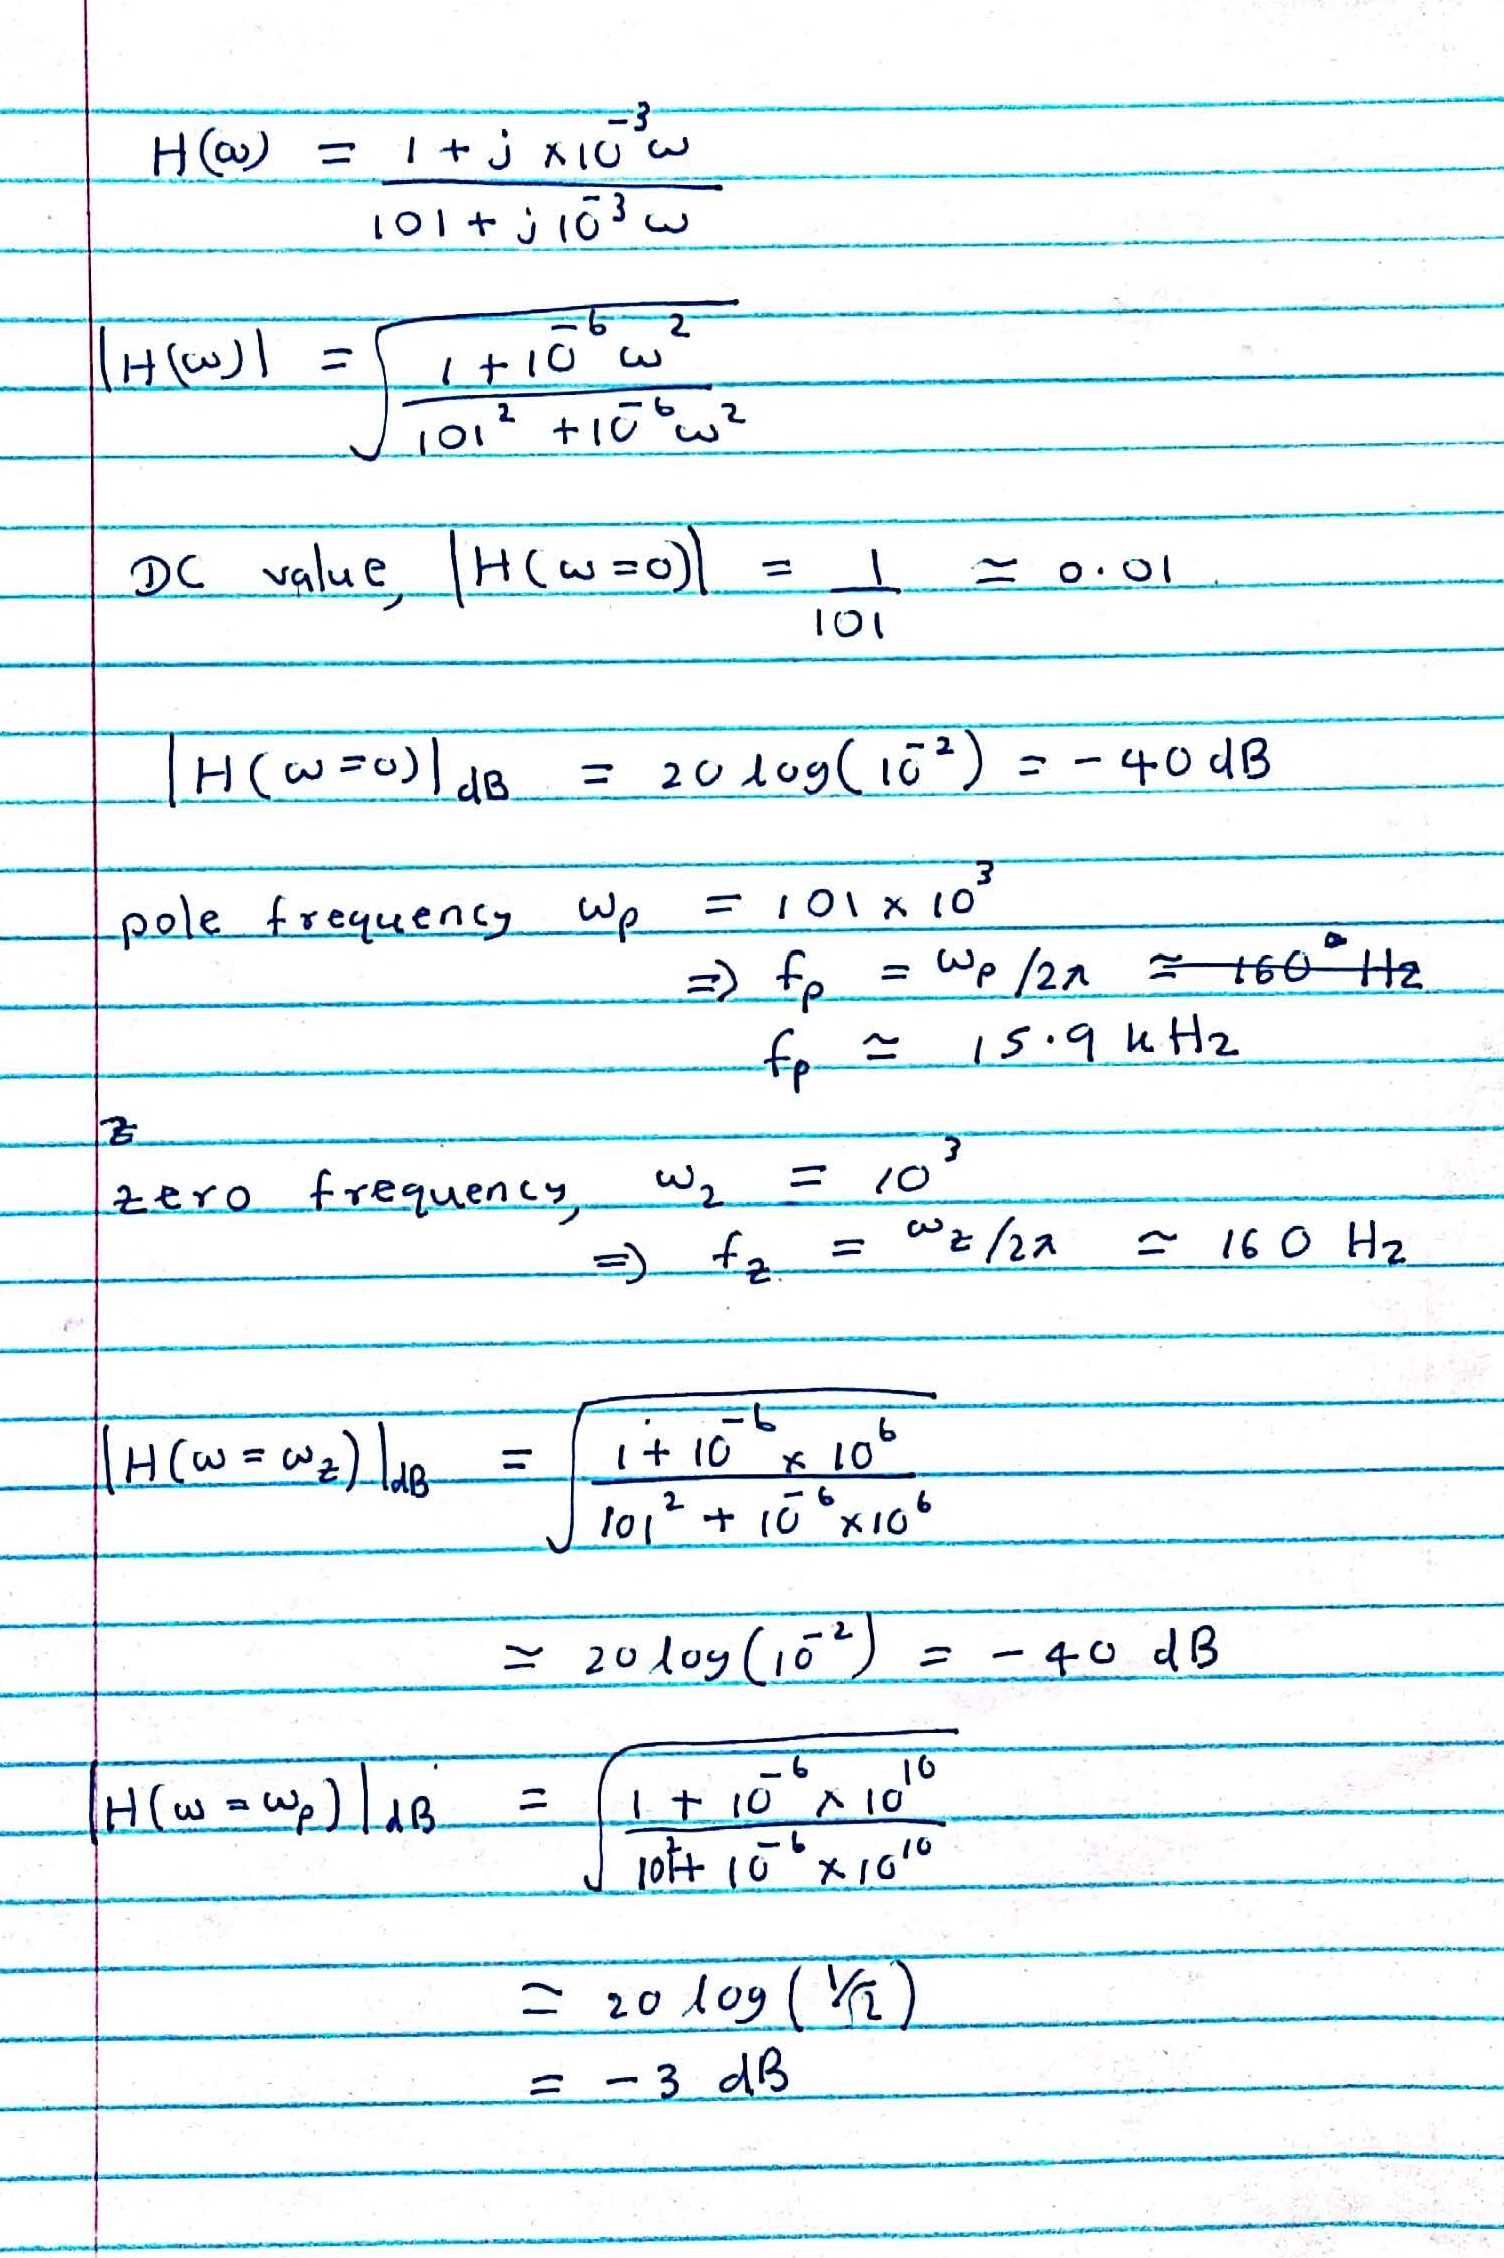 H(ω) = 1 + j ×10⁻³ω
101 + j 10⁻³ω
|H(ω)| = √ 1 + 10⁻⁶ω²
101² + 10⁻⁶ω²
DC value, |H(ω=0)| = 1 ≃ 0.01
101
|H(ω=0)|dB = 20 log(10⁻²) = -40 dB
pole frequency ωp = 101 × 10³
⇒ fp = ωp/2π ≃ 160 Hz
fp ≃ 15.9 kHz
z
zero frequency, ωz = 10³
⇒ fz = ωz/2π ≃ 160 Hz
|H(ω=ωz)|dB = √ 1 + 10⁻⁶ × 10⁶
101² + 10⁻⁶ × 10⁶
≃ 20 log(10⁻²) = -40 dB
|H(ω=ωp)|dB = √ 1 + 10⁻⁶ × 10¹⁰
101² + 10⁻⁶ × 10¹⁰
≃ 20 log(1/√2)
= -3 dB